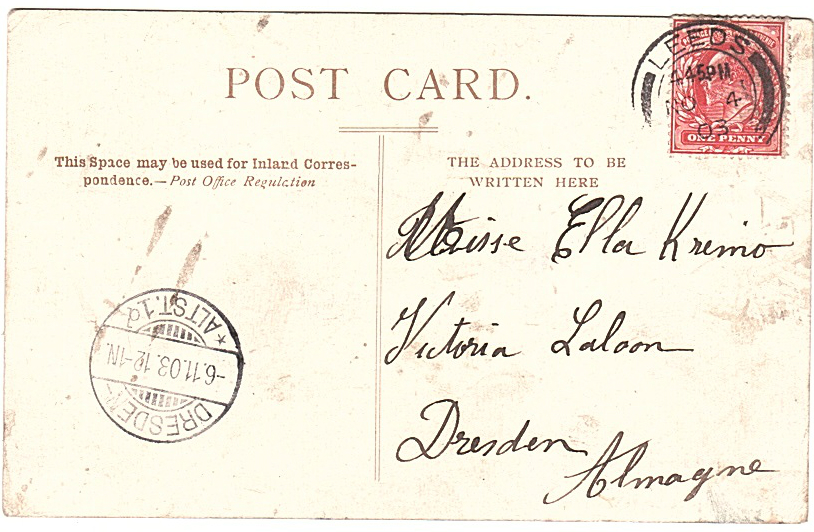 POST CARD.
LEEDS
4 45PM
NO 4
03
ONE PENNY
This Space may be used for Inland Corres-
pondence.—Post Office Regulation
THE ADDRESS TO BE
WRITTEN HERE
Misse Ella Kremo
Victoria Laloon
Dresden
Almagne
DRESDEN
-6.11.03.12-1N
*ALTST.1d